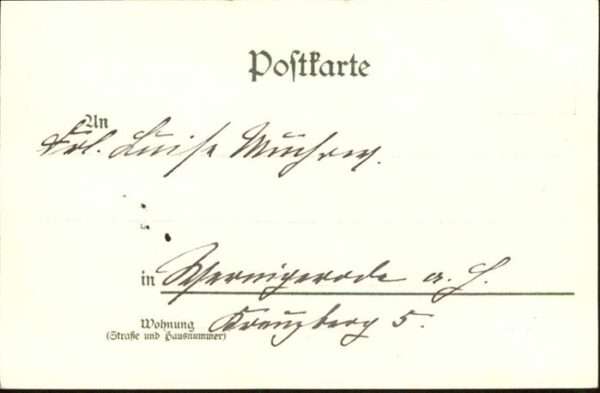 Postkarte
An
Frl. Luise
in Wernigerode a. H.
Wohnung Kreuzberg 5.
(Straße und Hausnummer)